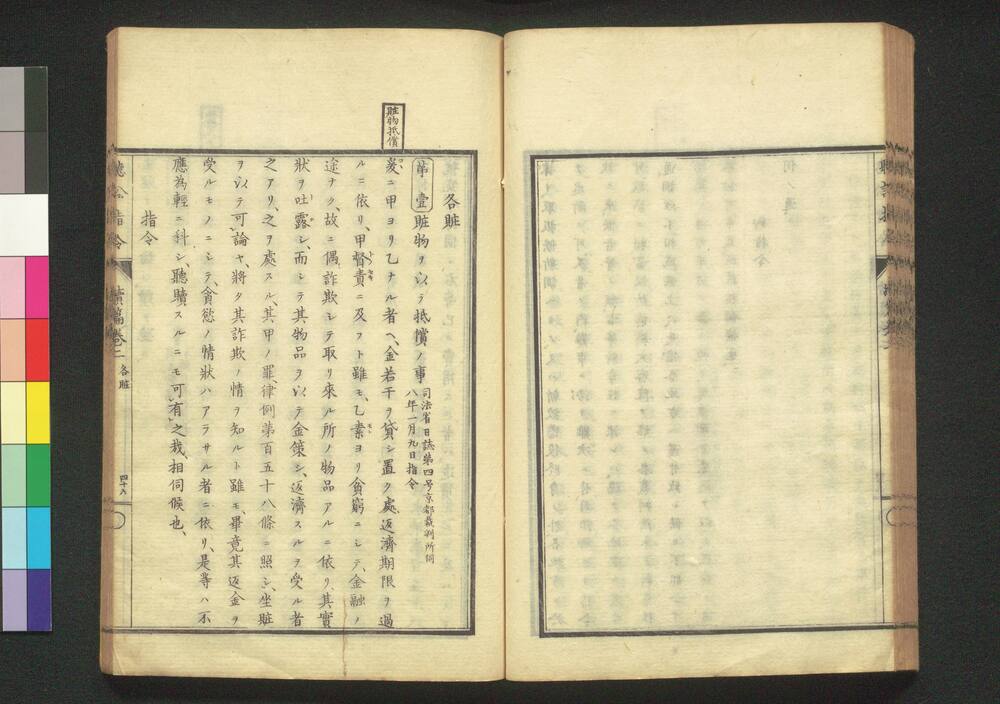 賍物抵償
各賍
第壹
賍物ヲ以テ抵償ノ事
司法省日誌第四号京都裁判所伺
八年一月九日指令
爰ニ甲ヨリ乙ナル者ヘ、金若干ヲ貸シ置ク處返濟期限ヲ過
ルニ依リ、甲督責ニ及フト雖モ、乙素ヨリ貧窮ニシテ、金融ノ
途ナク、故ニ偶詐欺シテ取リ來ル所ノ物品アルニ依リ、其實
狀ヲ吐露シ、而シテ其物品ヲ以テ金策シ、返濟スルヲ受ル者
之アリ、之ヲ處スル、其甲ノ罪、律例第百五十八條ニ照シ、坐賍
ヲ以テ可論ヤ、將タ其詐欺ノ情ヲ知ルト雖モ、畢竟其返金ヲ
受ルモノニシテ、貪慾ノ情狀ハアラサル者ニ依リ、是等ハ不
應為輕ニ科シ、聽贖スルニモ可有之哉、相伺候也、
指令
續篇卷二
各賍
四十六